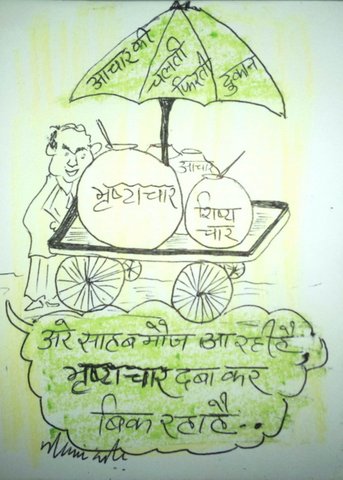 आचार की
चलती
फिरती
दुकान
आचार
भृष्टाचार
शिष्टा
चार
अरे साहब मौज आ रही है
भृष्टाचार दबा कर
बिक रहा है..